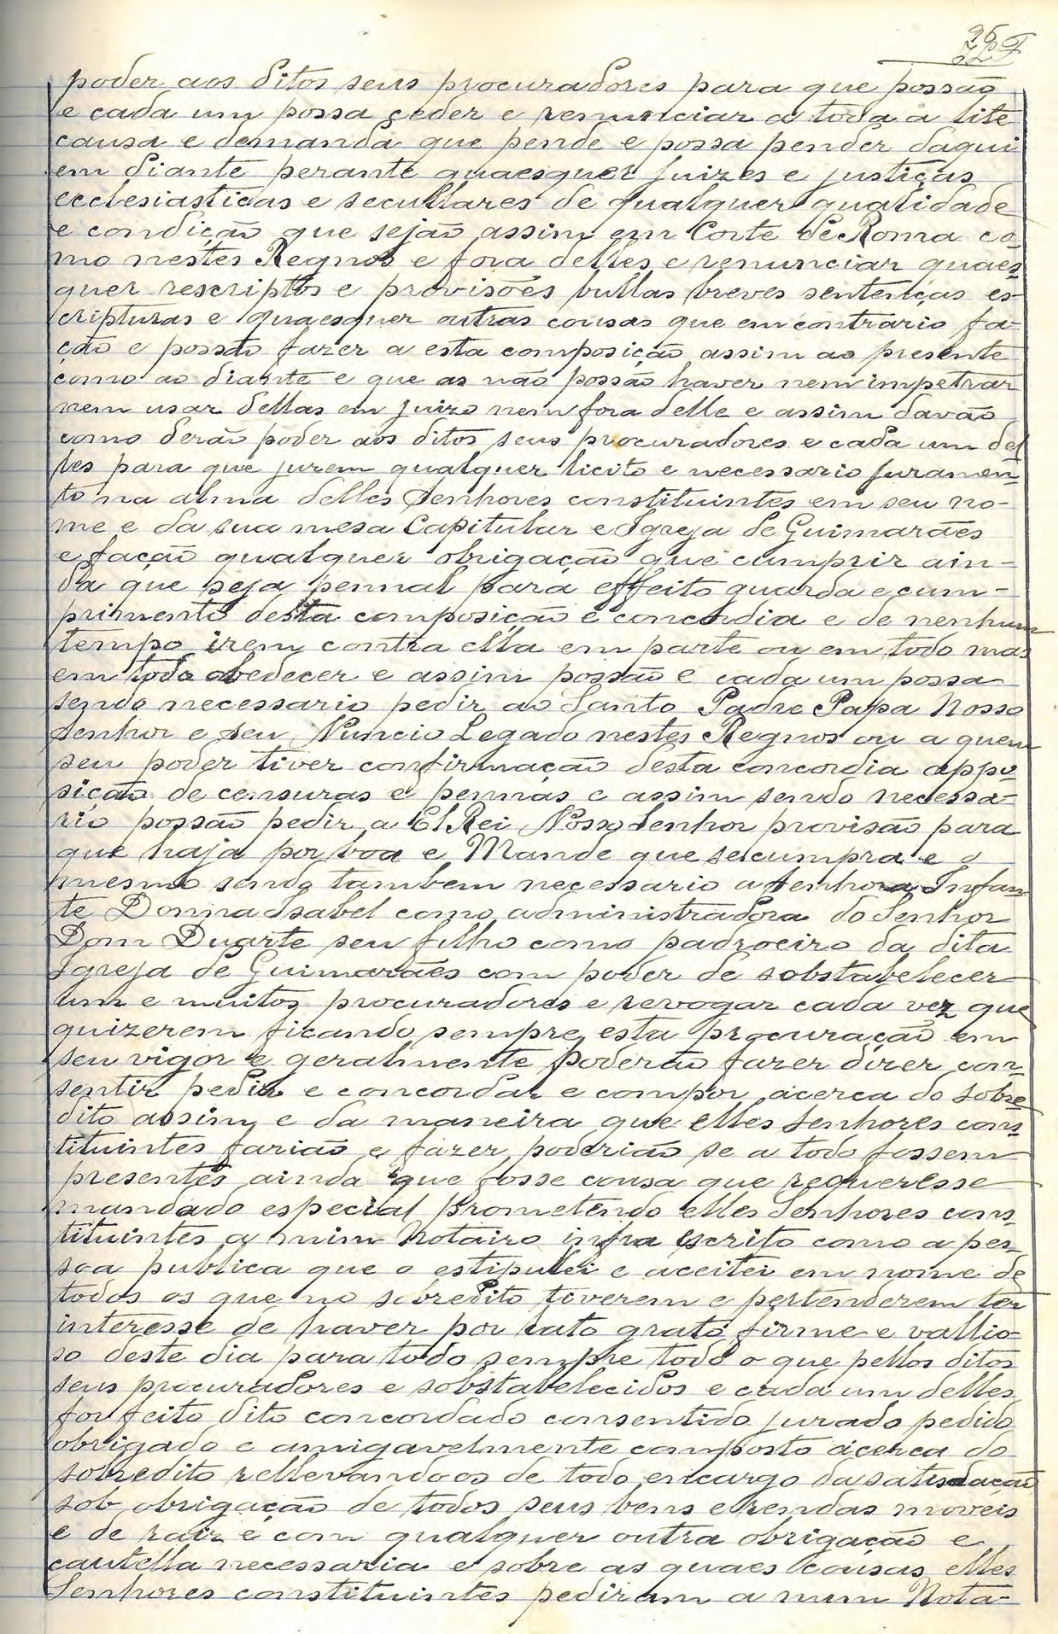 96
poder aos ditos seus procuradores para que possão
e cada um possa ceder e renunciar a toda a lite
causa e demanda que pende e possa pender daqui
em diante perante quaesquer juizes e justiças
ecclesiasticas e secullares de qualquer qualidade
e condição que sejão assim em Corte de Roma co-
mo nestes Regnos e fora delles e renunciar quaes-
quer rescriptos e provisões bullas breves sentenças es-
cripturas e quaesquer outras cousas que em contrario fa-
ção e possão fazer a esta composição assim ao presente
como ao diante e que as não possão haver nem impetrar
nem usar dellas em juizo nem fora delle e assim davão
como derão poder aos ditos seus procuradores e cada um del
les para que jurem qualquer licito e necessario juramen-
to na alma delles Senhores constituintes em seu no-
me e da sua mesa Capitular e Igreja de Guimarães
e fação qualquer obrigação que cumprir ain-
da que seja pennal para effeito guarda e cum-
primento desta composição e concordia e de nenhum
tempo irem contra ella em parte ou em todo mas
em todo obedecer e assim possão e cada um possa
sendo necessario pedir ao Santo Padre Papa Nosso
Senhor e seu Nuncio Legado nestes Regnos ou a quem
seu poder tiver confirmação desta concordia appo
sição de censuras e pennas e assim sendo necessa-
rio possão pedir a El Rei Nosso Senhor provisão para
que haja por boa e Mande que se cumpra e o
mesmo sendo tambem necessario a Senhora Infan-
te Donna Isabel como administradora do Senhor
Dom Duarte seu filho como padroeiro da dita
Igreja de Guimarães com poder de sobstabelecer
um e muitos procuradores e revogar cada vez que
quizerem ficando sempre esta procuração em
seu vigor e geralmente poderão fazer dizer con-
sentir pedir e concordar e compor acerca do sobre-
dito assim e da maneira que elles Senhores cons-
tituintes farião e fazer poderião se a todo fossem
presentes ainda que fosse cousa que requeresse
mandado especial prometendo elles Senhores cons-
tituintes a mim Notairo infra escrito como a pes-
soa publica que o estipulei e aceitei em nome de
todos os que no sobredito tiverem e pertenderem ter
interesse de haver por rato grato firme e vallio-
so deste dia para todo sempre todo o que pellos ditos
seus procuradores e sobstabelecidos e cada um delles
for feito dito concordado consentido jurado pedido
obrigado e amigavelmente composto acerca do
sobredito rellevandoos de todo encargo da satisdação
sob obrigação de todos seus bens e rendas moveis
e de raiz e com qualquer outra obrigação e
cautella necessaria e sobre as quaes cousas elles
Senhores constituintes pediram a mim Nota-